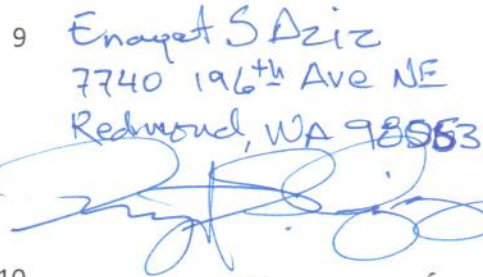 9 Enayet S Aziz
7740 196th Ave NE
Redmond, WA 98053
10